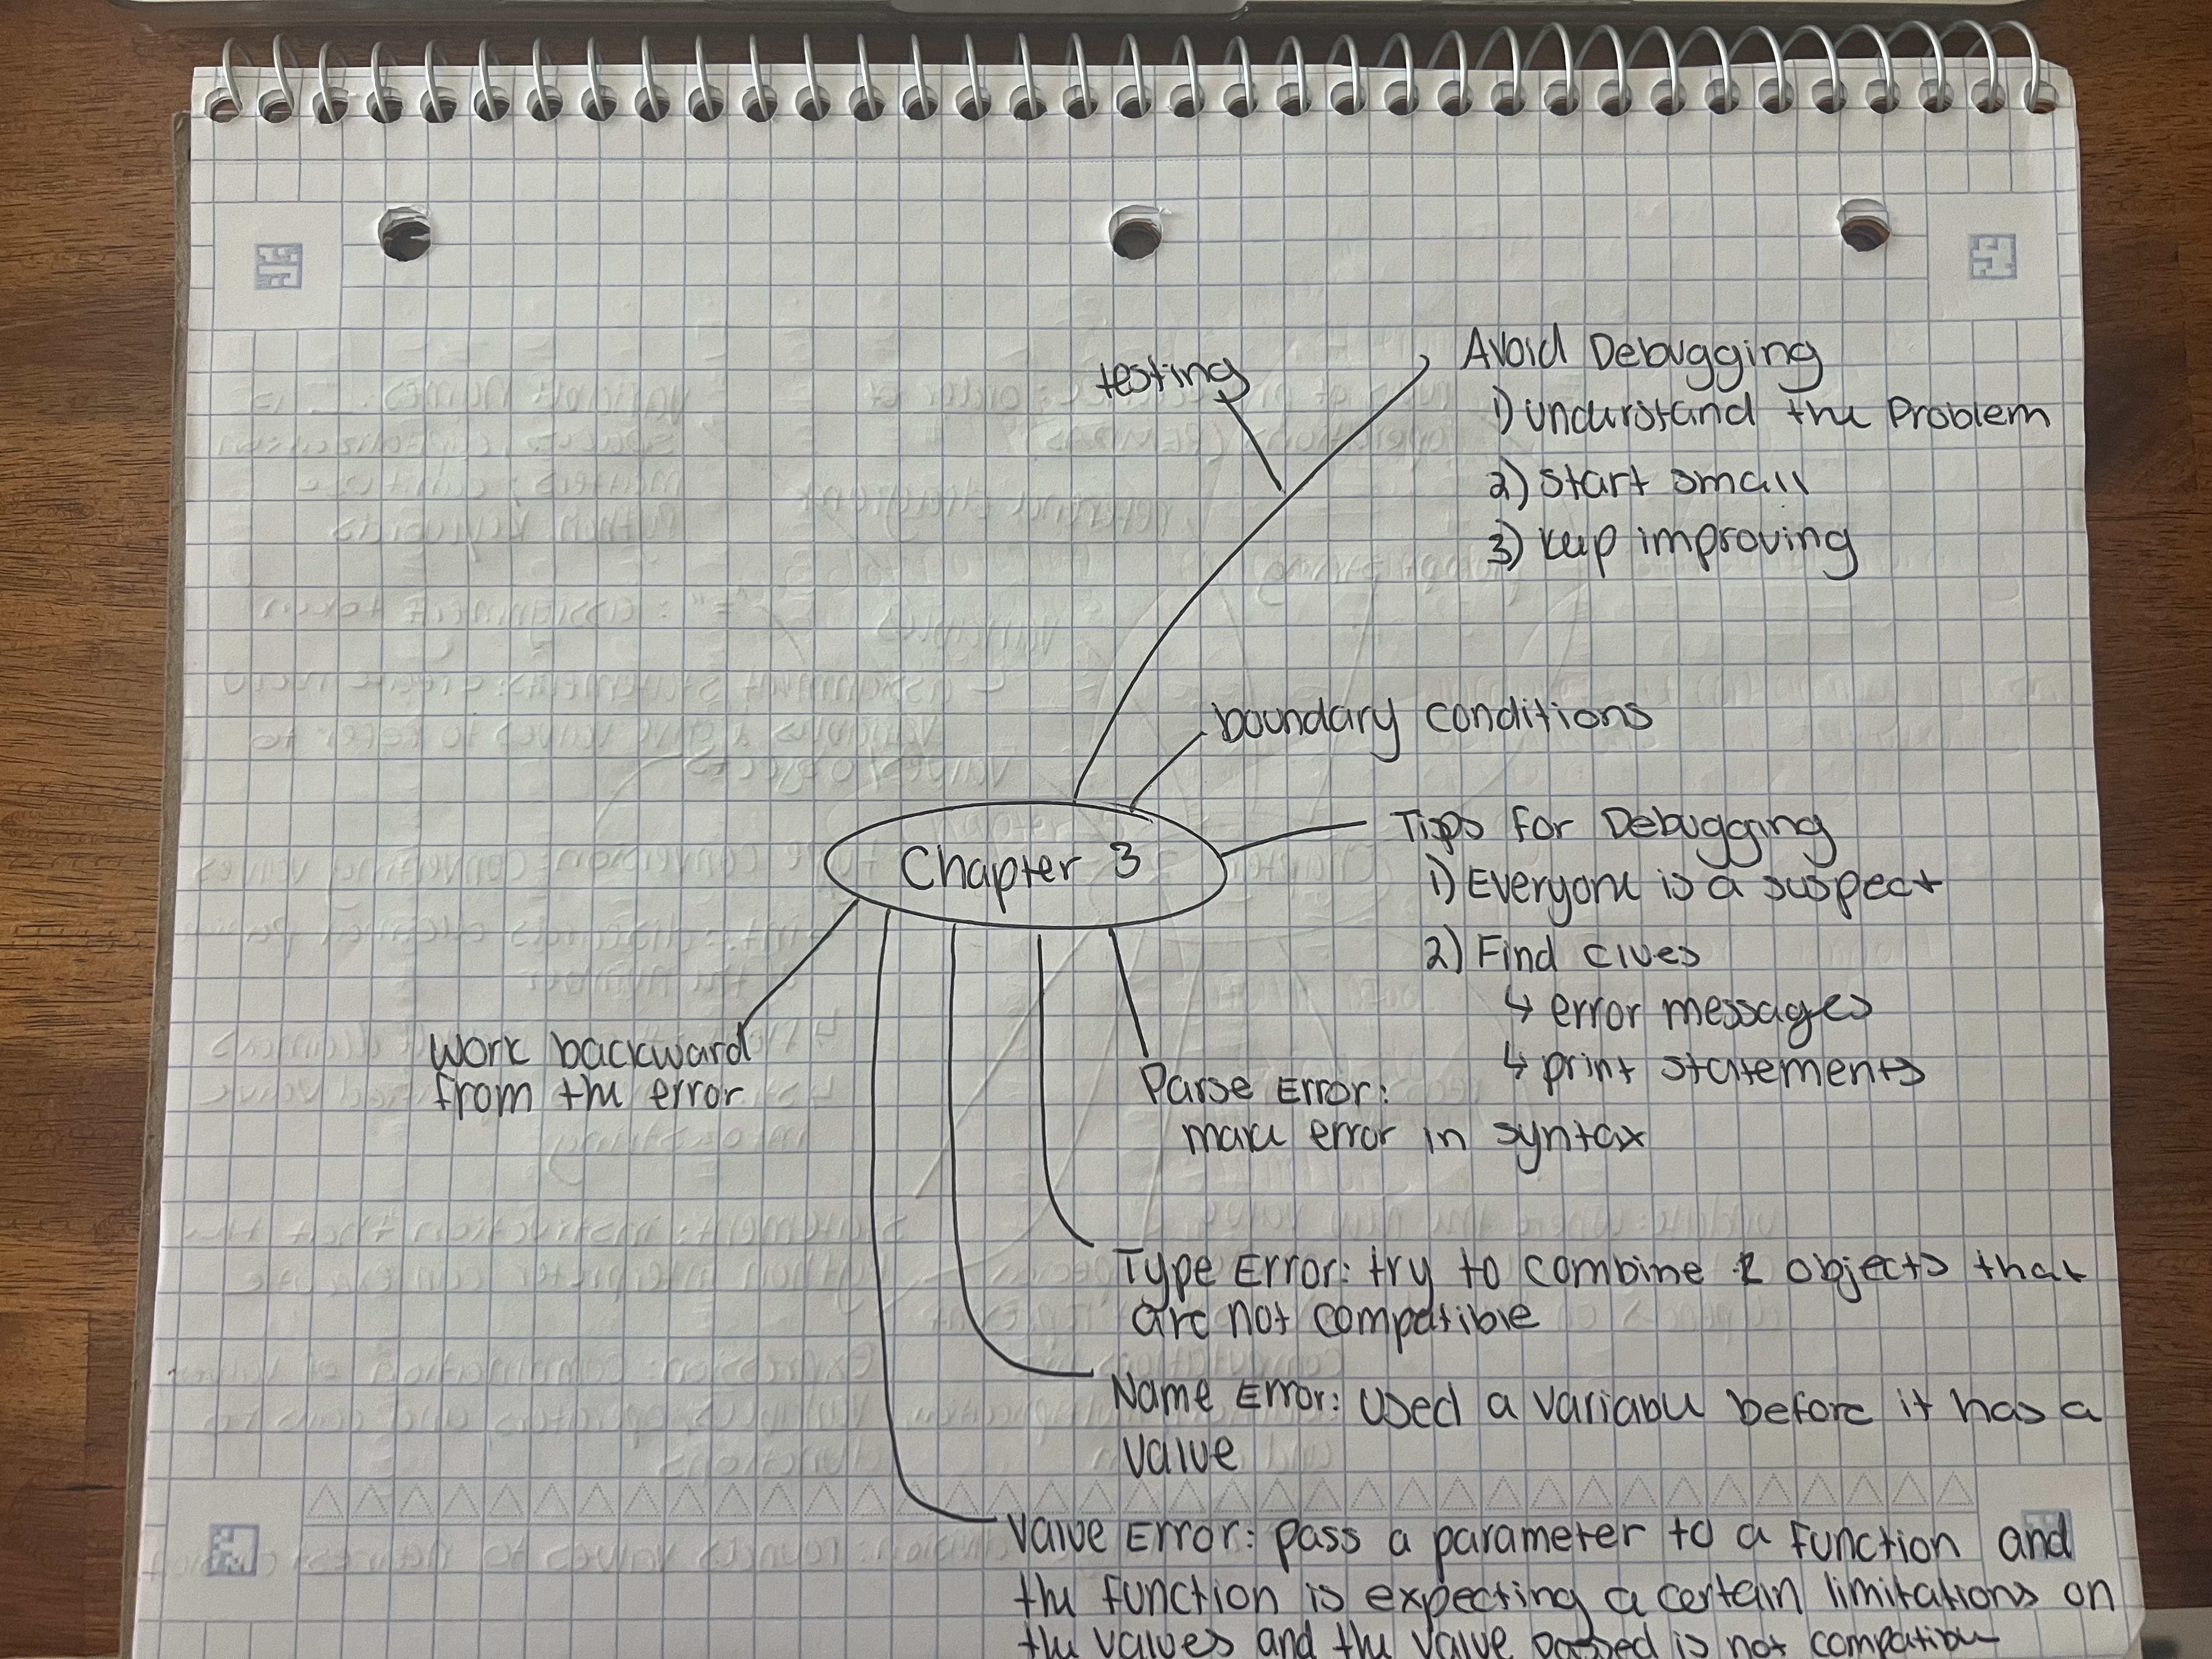 testing
Avoid Debugging
1) understand the Problem
2) start small
3) keep improving
boundary conditions
Chapter 3
Tips for Debugging
1) Everyone is a suspect
2) Find clues
↳ error messages
↳ print statements
Work backward
from the error
Parse Error:
make error in syntax
Type Error: try to combine 2 objects that
are not compatible
Name Error: Used a variable before it has a
value
Value Error: pass a parameter to a function and
the function is expecting a certain limitations on
the values and the value passed is not compatible